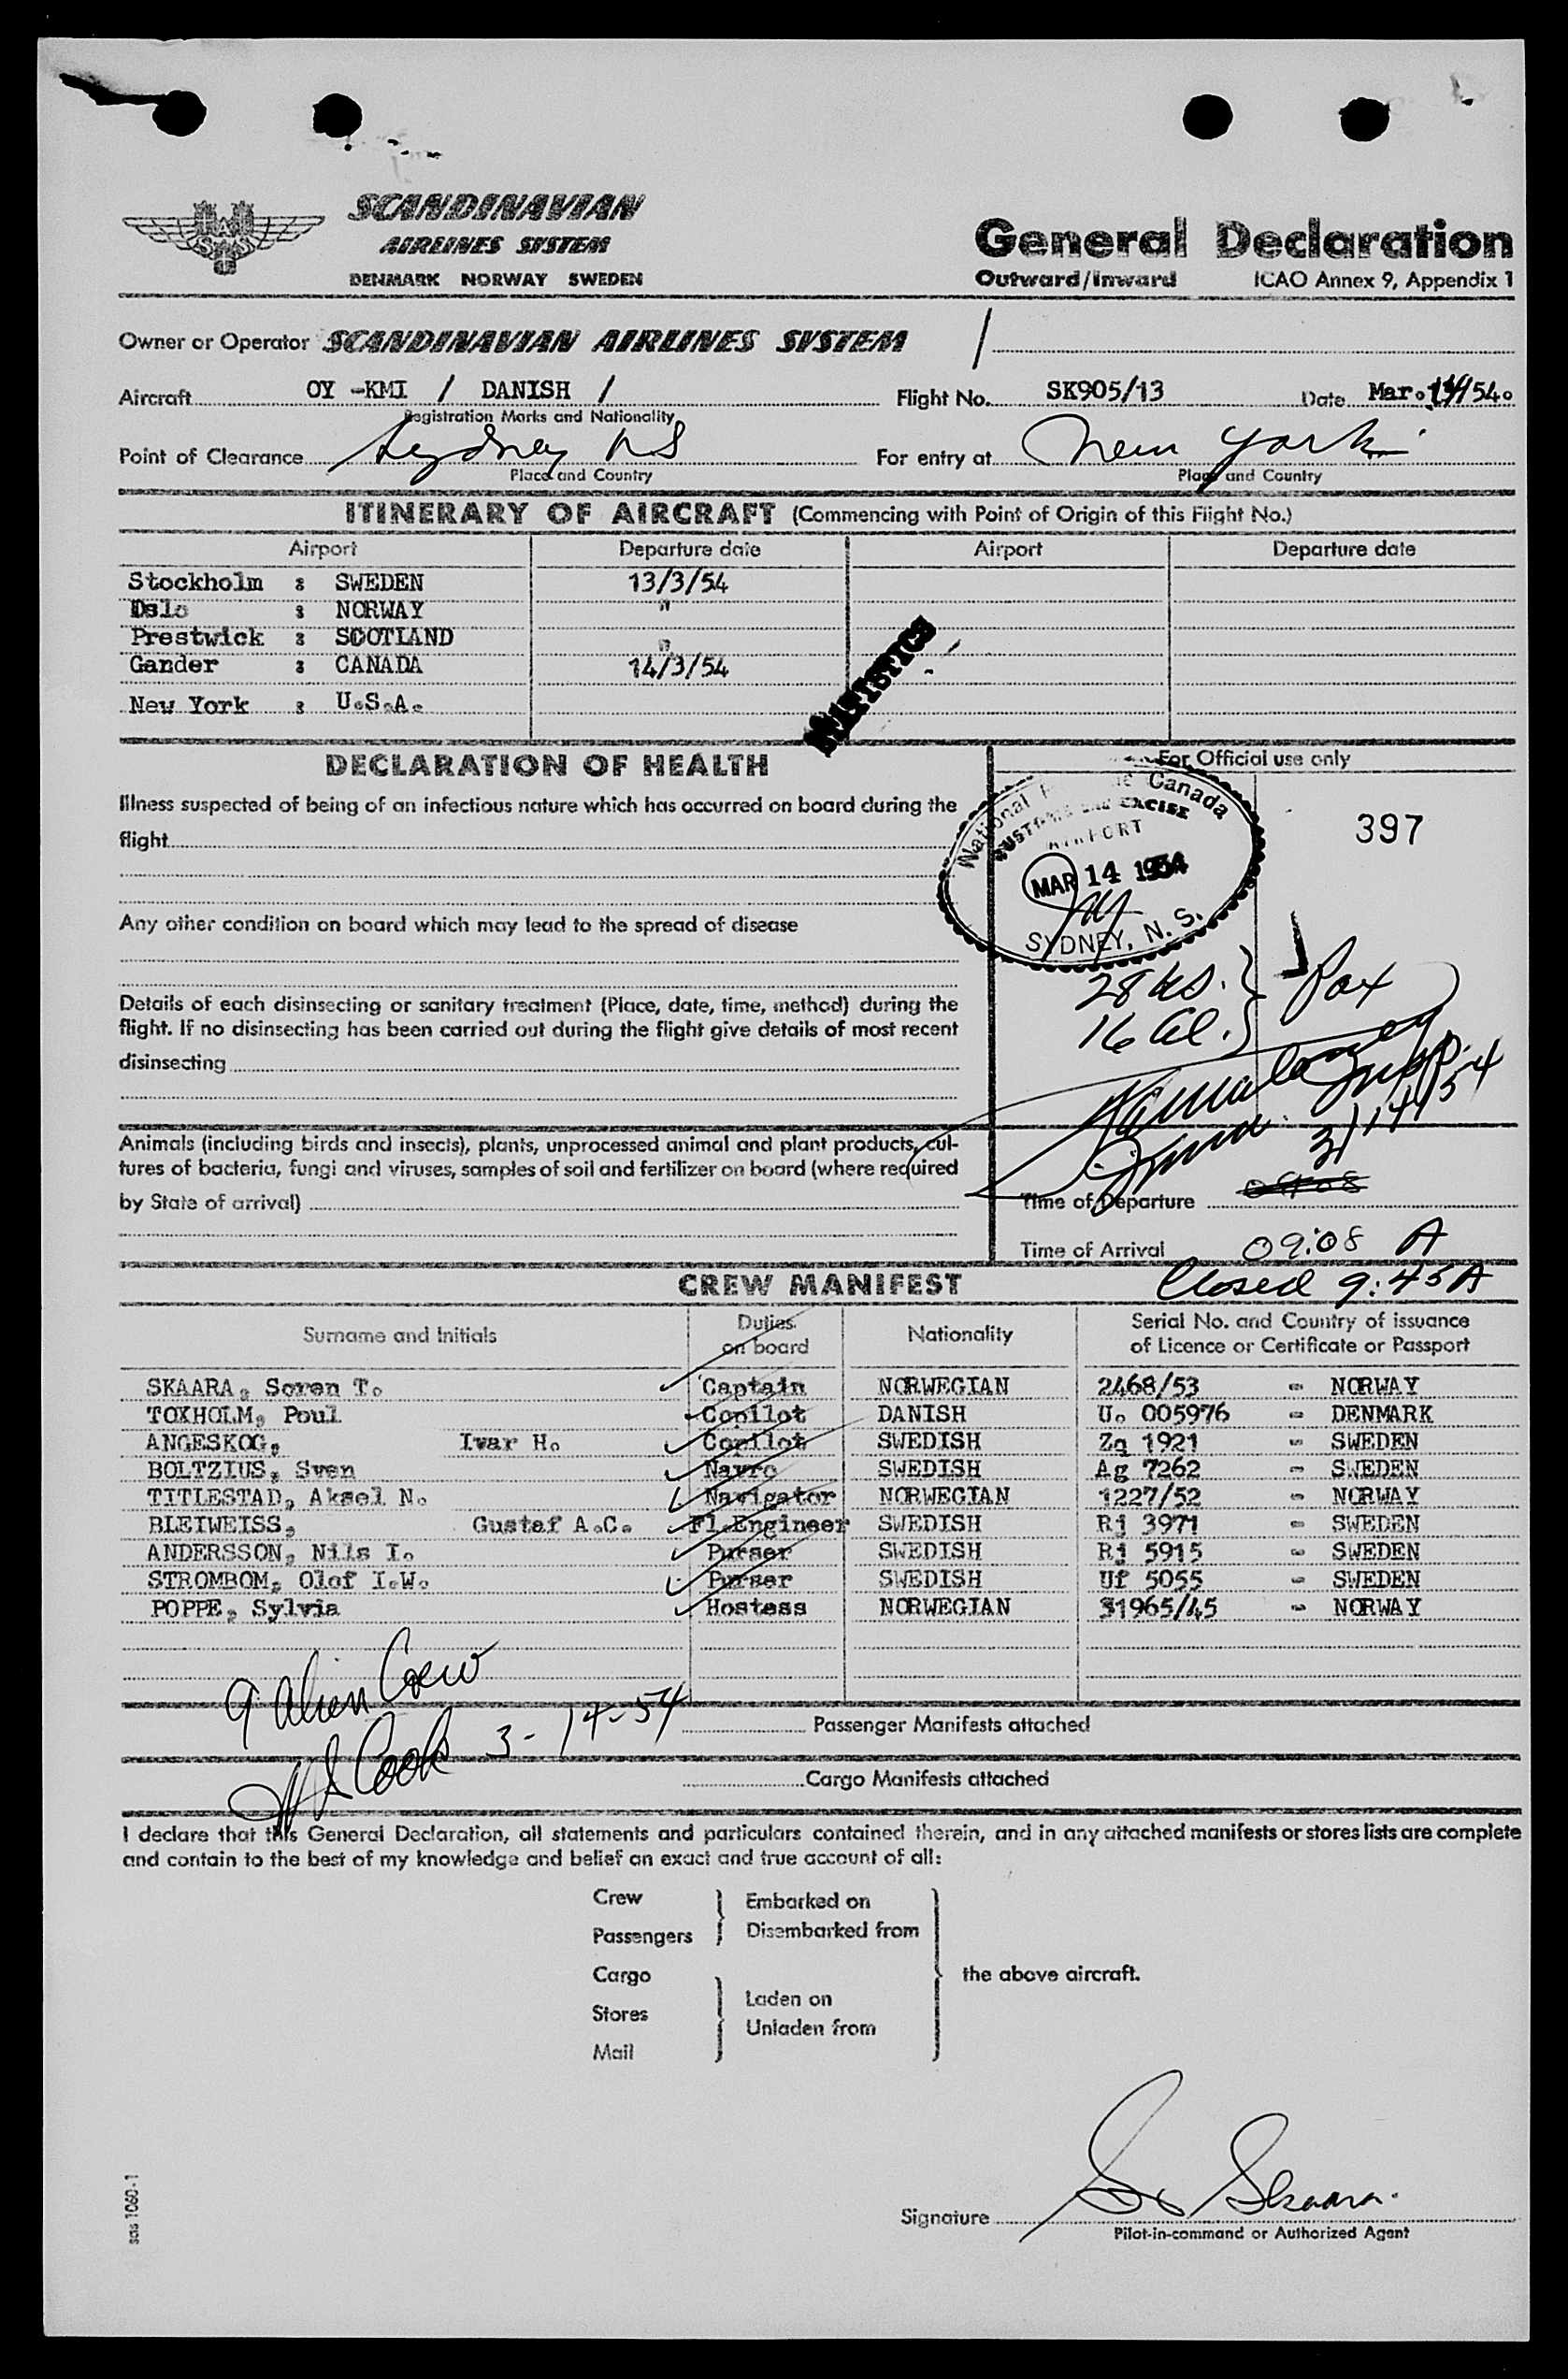 SCANDINAVIAN
AIRLINES SYSTEM
DENMARK NORWAY SWEDEN
SAS
General Declaration
Outward/Inward ICAO Annex 9, Appendix 1
Owner or Operator SCANDINAVIAN AIRLINES SYSTEM /
Aircraft OY -KMI / DANISH / Flight No. SK905/13 Date Mar. 14/54.
Registration Marks and Nationality
Point of Clearance Sydney NS For entry at New York
Place and Country Place and Country
ITINERARY OF AIRCRAFT (Commencing with Point of Origin of this Flight No.)
Airport Departure date Airport Departure date
Stockholm : SWEDEN 13/3/54
Oslo : NORWAY "
Prestwick : SCOTLAND "
Gander : CANADA 14/3/54
New York : U.S.A.
STATISTICS
DECLARATION OF HEALTH
For Official use only
Illness suspected of being of an infectious nature which has occurred on board during the
flight
397
National Canada
CUSTOMS AND EXCISE
AIRPORT
MAR 14 1954
SYDNEY, N. S.
Any other condition on board which may lead to the spread of disease
28 } Pax
16 }
Details of each disinsecting or sanitary treatment (Place, date, time, method) during the
flight. If no disinsecting has been carried out during the flight give details of most recent
disinsecting
3/14/54
Animals (including birds and insects), plants, unprocessed animal and plant products, cul-
tures of bacteria, fungi and viruses, samples of soil and fertilizer on board (where required
by State of arrival)
Time of Departure
Time of Arrival 09:08 A
Closed 9:45A
CREW MANIFEST
Surname and Initials Duties on board Nationality Serial No. and Country of issuance of Licence or Certificate or Passport
SKAARA, Soren T. Captain NORWEGIAN 2468/53 - NORWAY
TOXHOLM, Poul Copilot DANISH U. 005976 - DENMARK
ANGESKOG, Ivar H. Copilot SWEDISH Zq 1921 - SWEDEN
BOLTZIUS, Sven Navro SWEDISH Ag 7262 - SWEDEN
TITLESTAD, Aksel N. Navigator NORWEGIAN 1227/52 - NORWAY
BLEIWEISS, Gustaf A.C. Fl.Engineer SWEDISH Rj 3971 - SWEDEN
ANDERSSON, Nils I. Purser SWEDISH Rj 5915 - SWEDEN
STROMBOM, Olof I.W. Purser SWEDISH Uf 5055 - SWEDEN
POPPE, Sylvia Hostess NORWEGIAN 31965/45 - NORWAY
9 Alien Crew
Cook 3-14-54
Passenger Manifests attached
Cargo Manifests attached
I declare that this General Declaration, all statements and particulars contained therein, and in any attached manifests or stores lists are complete
and contain to the best of my knowledge and belief an exact and true account of all:
Crew Embarked on
Passengers Disembarked from
Cargo the above aircraft.
Laden on
Stores
Unladen from
Mail
sas 1060-1
Signature S. Skaara.
Pilot-in-command or Authorized Agent